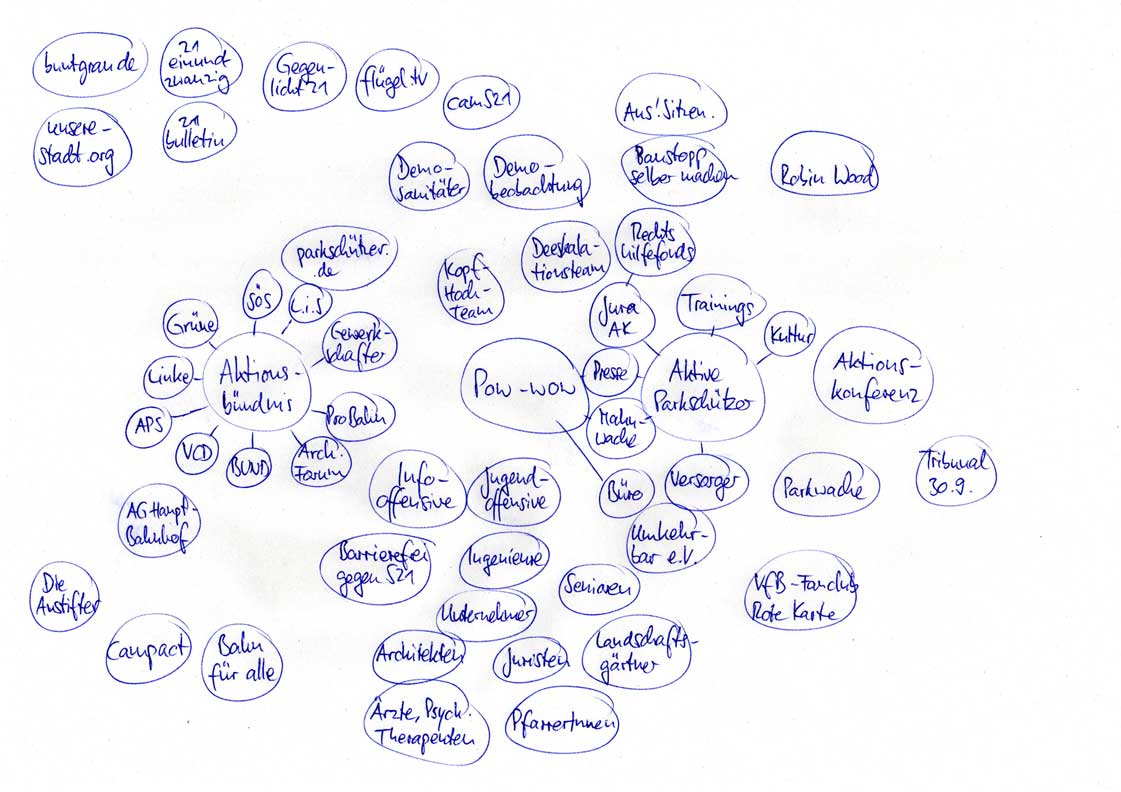 buntgrau.de
21
einund
zwanzig
Gegen-
licht 21
flügel.tv
camS21
unsere-
stadt.org
21
bulletin
Aus!Sitzen.
Demo-
sanitäter
Demo-
beobachtung
Baustopp
selber machen
Robin Wood
parkschützer.
de
Kopf-
Hoch-
team
Deeskala-
tionsteam
Rechts
hilfefonds
SÖS
L.i.S
Grüne
Gewerk-
schafter
Jura
AK
Trainings
Kultur
Linke
Aktions-
bündnis
Pow-wow
Presse
Aktive
Parkschützer
Aktions-
konferenz
APS
Pro Bahn
Mahn-
wache
VCD
BUND
Arch.
Forum
Info-
offensive
Jugend-
offensive
Büro
Versorger
Parkwache
Tribunal
30.9.
AG Haupt-
Bahnhof
Umkehr-
bar e.V.
Barrierefrei
gegen S21
Ingenieure
Die
Anstifter
Senioren
VfB-Fanclub
Rote Karte
Unternehmer
Campact
Bahn
für alle
Architekten
Juristen
Landschafts-
gärtner
Ärzte, Psych.
Therapeuten
PfarrerInnen